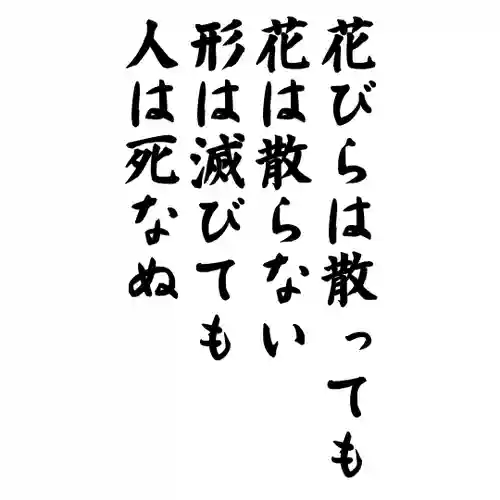 花びらは散っても
花は散らない
形は滅びても
人は死なぬ